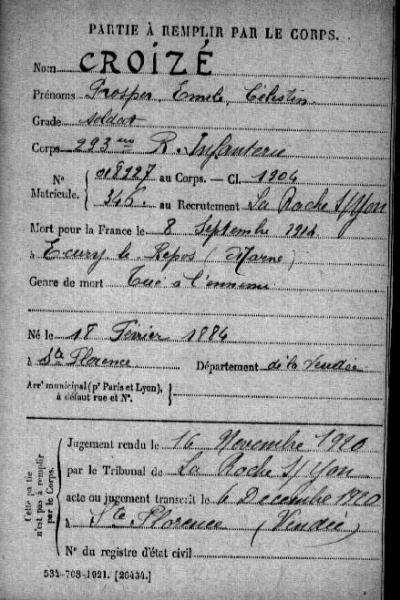 PARTIE À REMPLIR PAR LE CORPS.
Nom CROIZÉ
Prénoms Prosper, Emile, Célestin
Grade soldat
Corps 293me R. Infanterie
N° 018127 au Corps. — Cl. 1904
Matricule. 346. au Recrutement La Roche S/Yon
Mort pour la France le 8 Septembre 1914
à Ecury le Repos (Marne)
Genre de mort Tué à l'ennemi
Né le 18 Février 1884
à Ste Florence Département de la Vendée
Arrt municipal (pr Paris et Lyon),
à défaut rue et N°.
Cette partie n'est pas à remplir par le Corps.
Jugement rendu le 16 Novembre 1920
par le Tribunal de La Roche S/Yon
acte ou jugement transcrit le 6 Decembre 1920
à Ste Florence (Vendée)
N° du registre d'état civil
534-708-1921. [26434.]